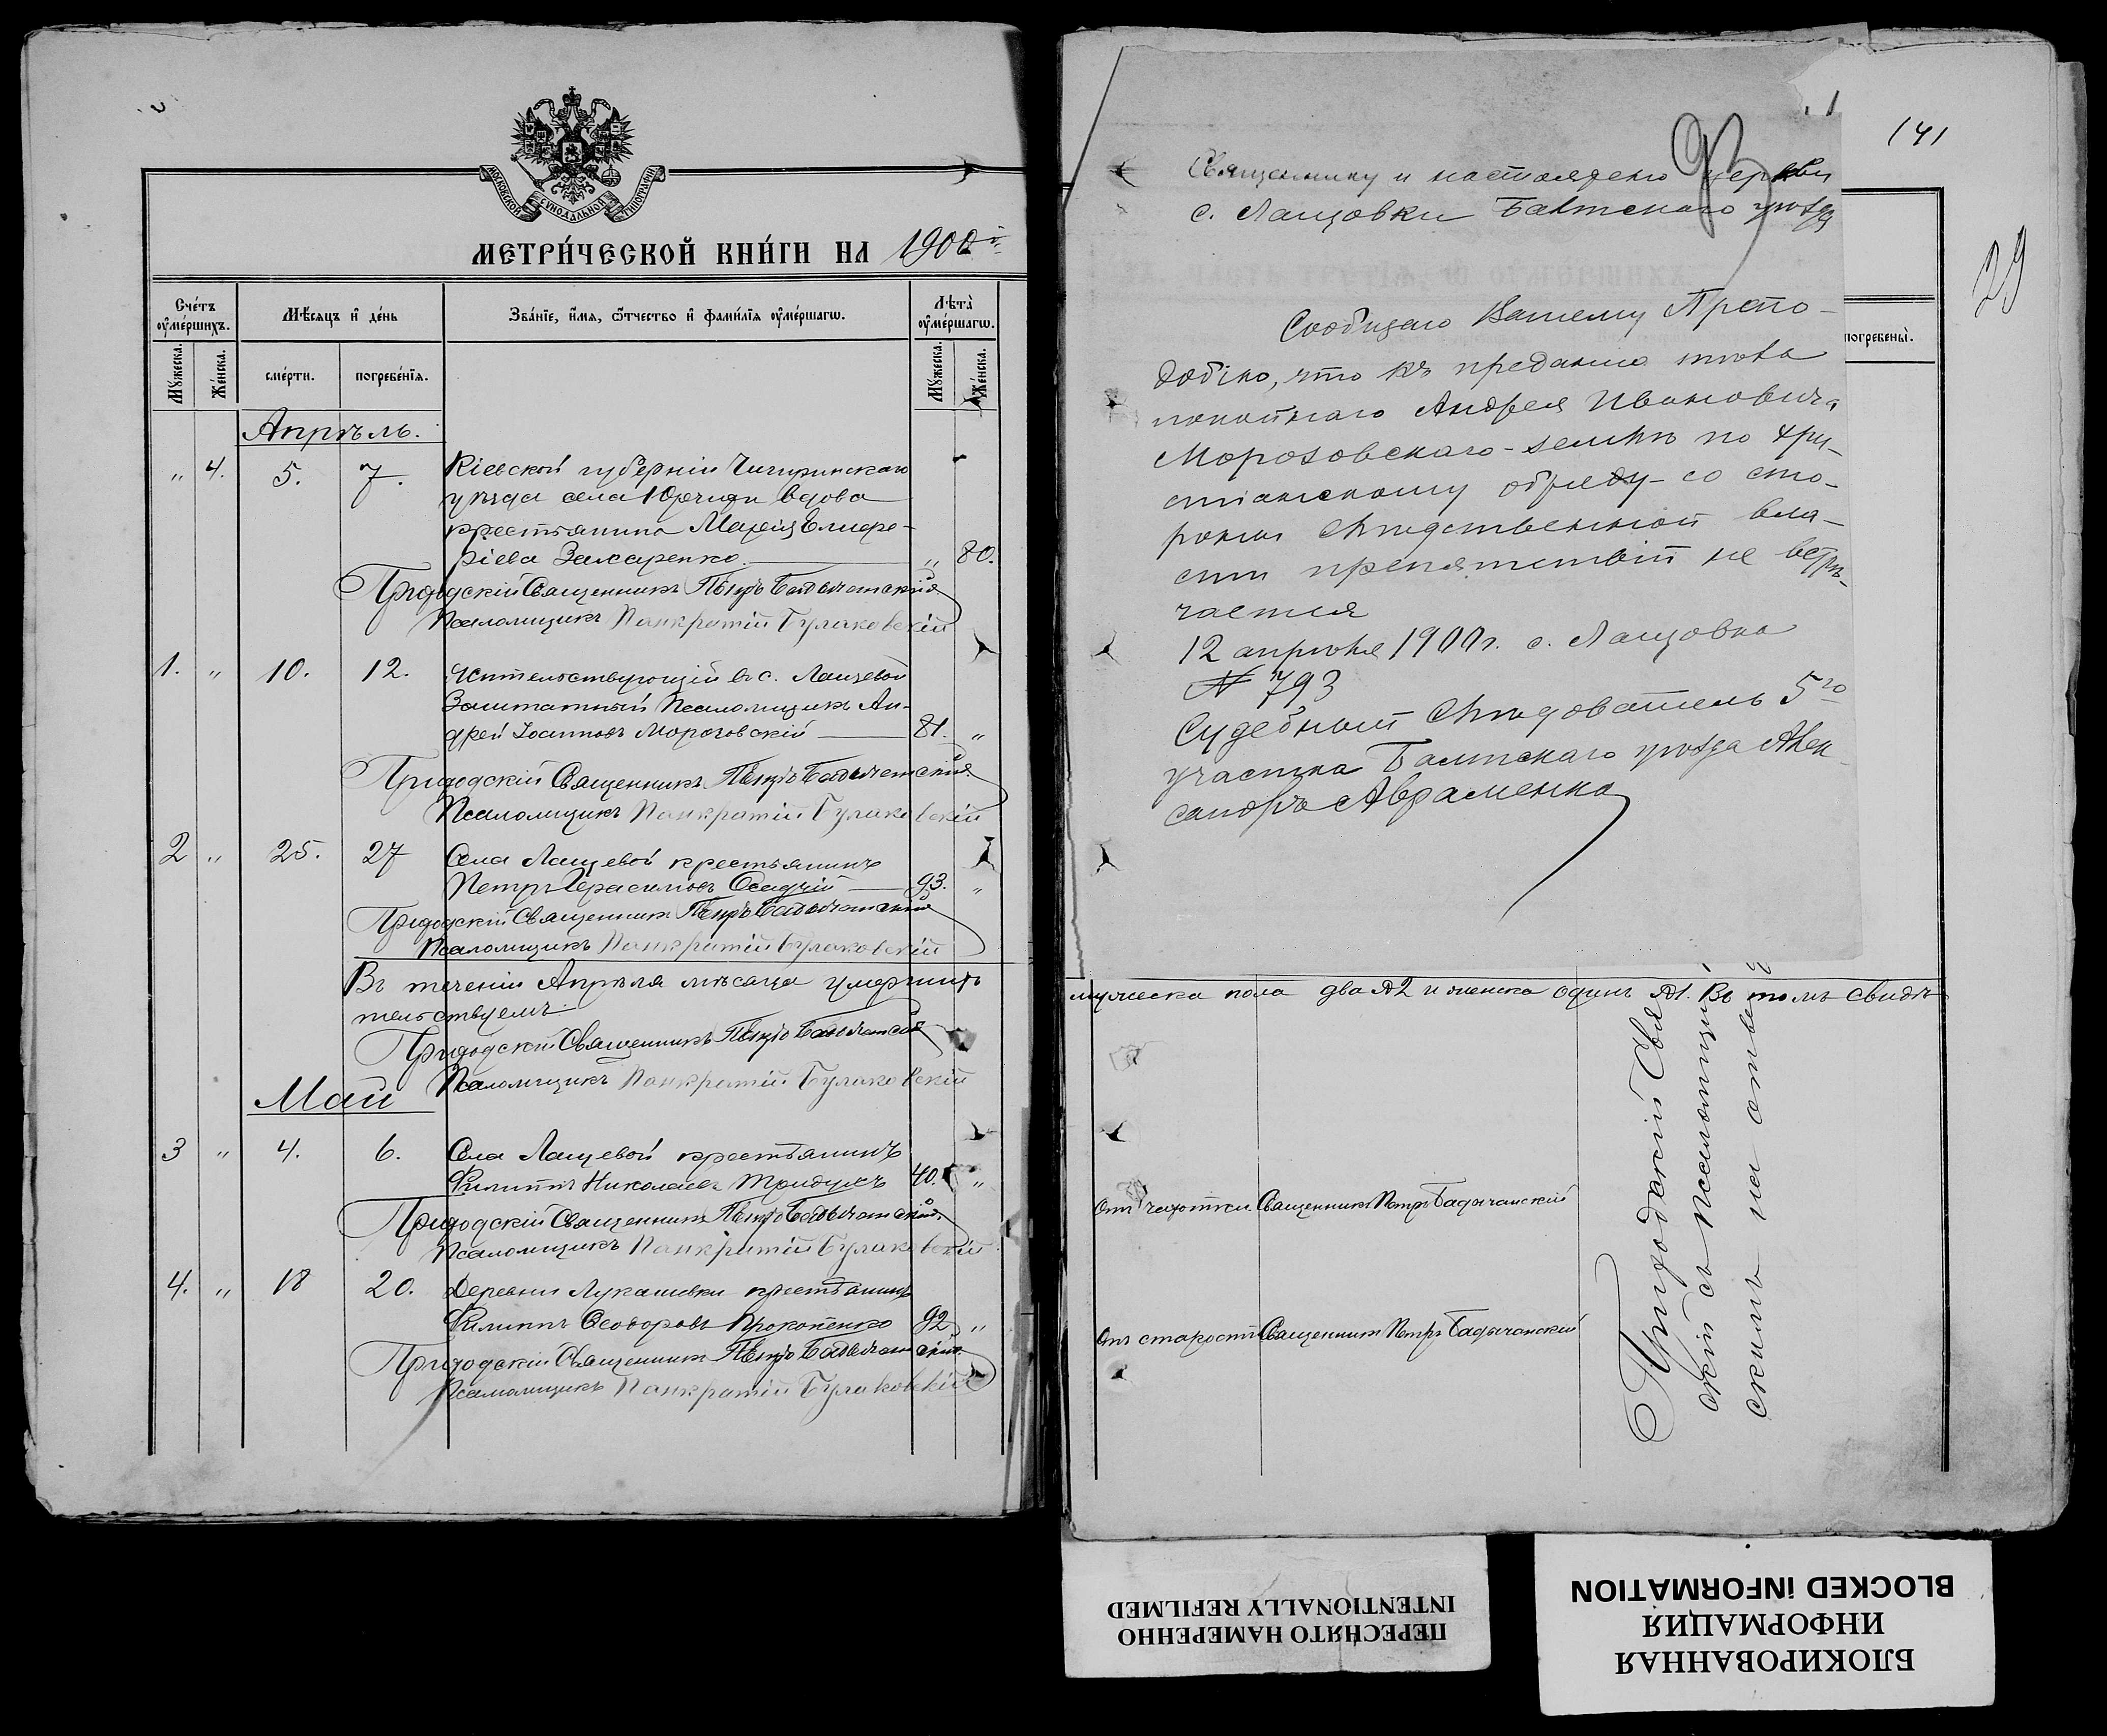 МОСКОВСКОЙ СѴНОДАЛЬНОЙ ТИПОГРАФІИ
МЕТРИ́ЧЕСКОЙ КНИ́ГИ НА 1900й
Сче́тъ ᲂу҆ме́ршихъ.
Мѣ́сѧцъ и҆ де́нь
Зва́нїе, и҆́мѧ, ѻ҆́тчество и҆ фами́лїѧ ᲂу҆ме́ршагѡ.
Лѣ̑та̀ ᲂу҆ме́ршагѡ.
Мꙋ́жеска. Же́нска. сме́рти. погребе́нїѧ. Мꙋ́жеска. Же́нска.
Апрѣль.
„ 4. 5. 7. Кіевской губерніи Чигиринскаго
уѣзда села вдова
крестьянина
ріева Захаренко. „ 80.
Приходскій Священникъ Петръ Бадычанскій
Псаломщикъ Панкратій Булаковскій
1. „ 10. 12. Жительствующій въ с. Лащевой
Заштатный Псаломщикъ Ан-
дрей Іоанновъ Морозовскій 81. „
Приходскій Священникъ Петръ Бадычанскій
Псаломщикъ Панкратій Булаковскій
2 „ 25. 27 Села Лащевой крестьянинъ
Петръ Герасимовъ Осадчій 93. „
Приходскій Священникъ Петръ Бадычанскій
Псаломщикъ Панкратій Булаковскій
Въ теченіи Апрѣля мѣсяца умершихъ
тельствуемъ
Приходскій Священникъ Петръ Бадычанскій
Псаломщикъ Панкратій Булаковскій
Май
3 „ 4. 6. Села Лащевой крестьянинъ
Филиппъ Николаевъ 40. „
Приходскій Священникъ Петръ Бадычанскій
Псаломщикъ Панкратій Булаковскій
4. „ 18 20. Деревни Лукашевки крестьянинъ
Филиппъ Ѳеодоровъ Прокопенко 92 „
Приходскій Священникъ Петръ Бадычанскій
Псаломщикъ Панкратій Булаковскій
141
29
погребены̀.
Священнику и настоятелю церкви
с. Лащовки Балтскаго уѣзда
Сообщаю Вашему Препо-
добію, что къ преданію тѣла
покойнаго Андрея Ивановича
Морозовскаго - землѣ по хри-
стіанскому обряду - со сто-
роны слѣдственной вла-
сти препятствій не встрѣ-
чается
12 апрѣля 1900 г. с. Лащовка
№ 793
Судебный Слѣдователь 5го
участка Балтскаго уѣзда Алек
сандръ Авраменко
мужеска пола два №2 и женска одинъ №1. Въ томъ свидѣ
Отъ чахотки Священникъ Петръ Бадычанскій
Отъ старости Священникъ Петръ Бадычанскій
Приходскій Свя
съ Псаломщи
на
ПЕРЕСНЯТО НАМЕРЕННО
INTENTIONALLY REFILMED
БЛОКИРОВАННАЯ
ИНФОРМАЦИЯ
BLOCKED INFORMATION